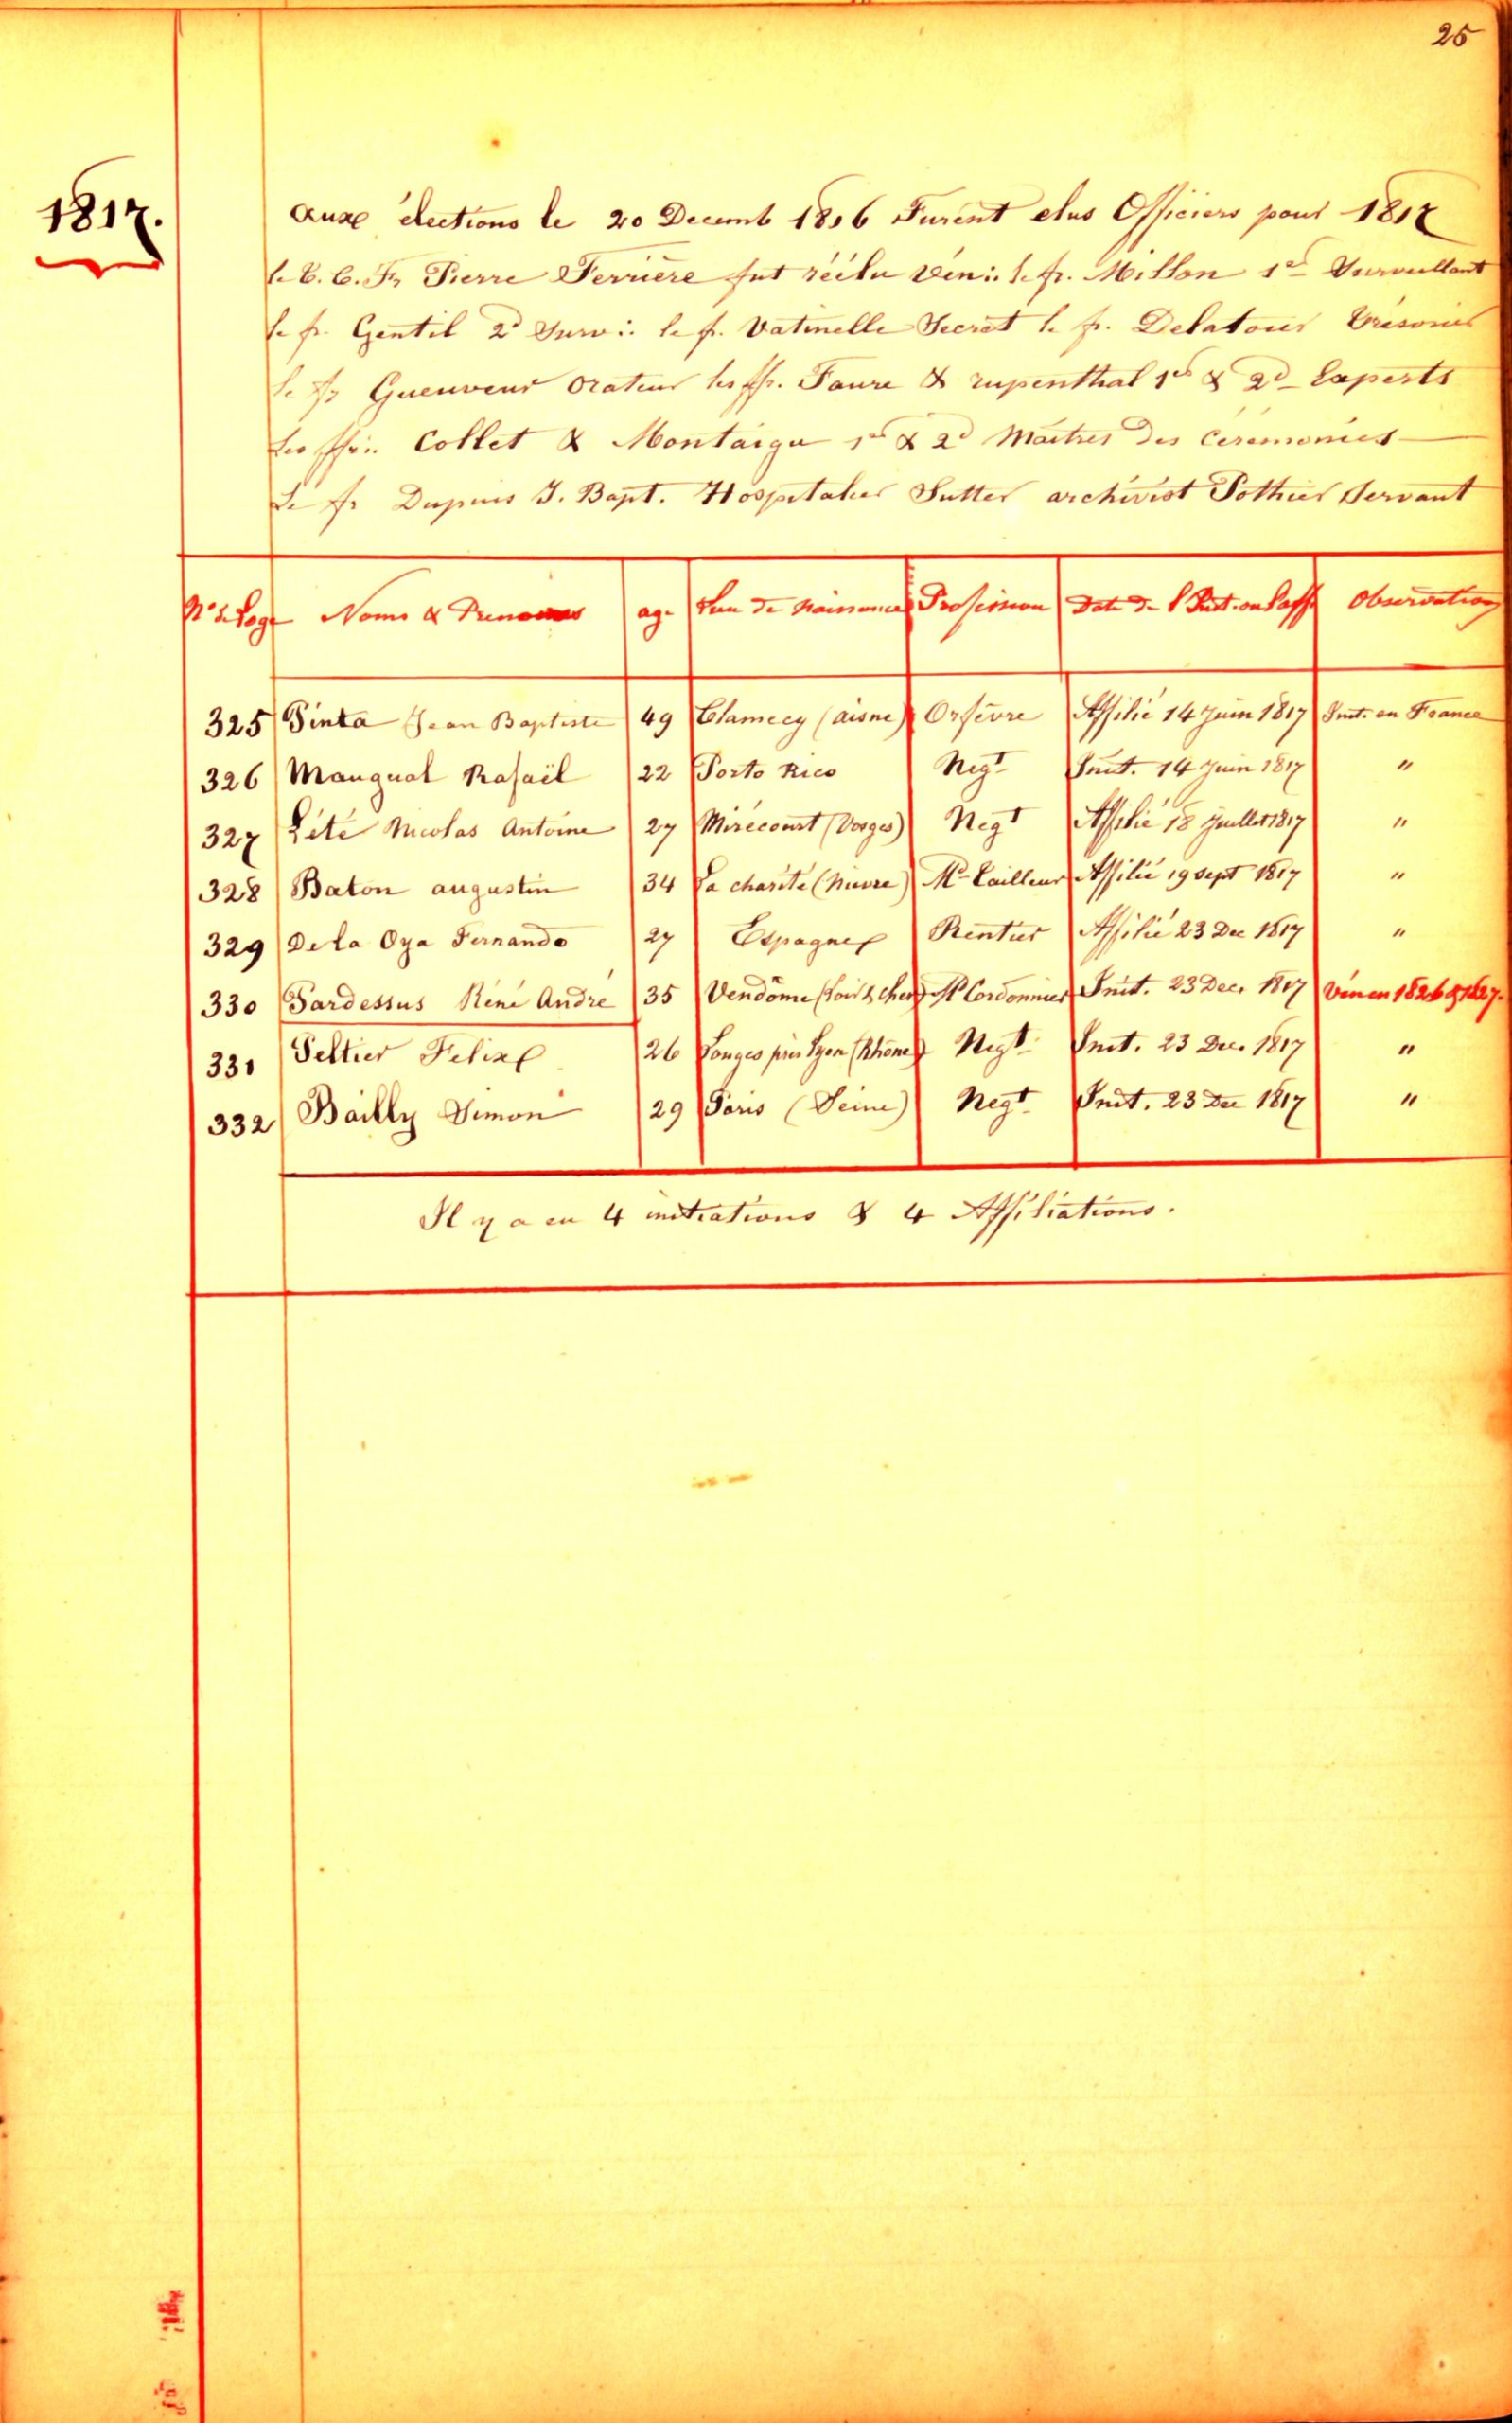 25
1817.
Aux élections le 20 Decemb 1816 Furent elus Officiers pour 1817
le T. C. Fr Pierre Perrière fut réélu Vén∴ le fr. Millon 1er Surveillant
le fr. Gentil 2d Surv∴ le fr. Vatinelle Secret le fr. Delatour Trésorier
le fr Gueuveur Orateur les ffr. Faure & rupenthal 1er & 2d Experts
Les ffr∴ Collet & Montaigu 1er & 2d Maîtres des Ceremonies
Le fr Dupuis J. Bapt. Hospitalier Sutter archivist Pothier Servant
No de Loge Noms & Prenoms age Lieu de Naissance Profession Date de l'Init. ou l'aff. Observations
325 Pinta Jean Baptiste 49 Clamecy (aisne) Orfèvre Affilié 14 Juin 1817 Init. en France
326 Mangual Rafaël 22 Porto Rico Negt Init. 14 Juin 1817 "
327 Lété Nicolas Antoine 27 Mirecourt (Vosges) Negt Affilié 18 Juillet 1817 "
328 Baton augustin 34 La charité (Nievre) Md Tailleur Affilié 19 Sept 1817 "
329 De la Oya Fernando 27 Espagne Rentier Affilié 23 Dec 1817 "
330 Pardessus René André 35 Vendôme (Loir & cher) Md Cordonnier Init. 23 Dec. 1817 Vén en 1826 & 1827.
331 Peltier Felix 26 Longes près Lyon (Rhône) Negt Init. 23 Dec. 1817 "
332 Bailly Simon 29 Paris (Seine) Negt Init. 23 Dec 1817 "
Il y a eu 4 initiations & 4 Affiliations.